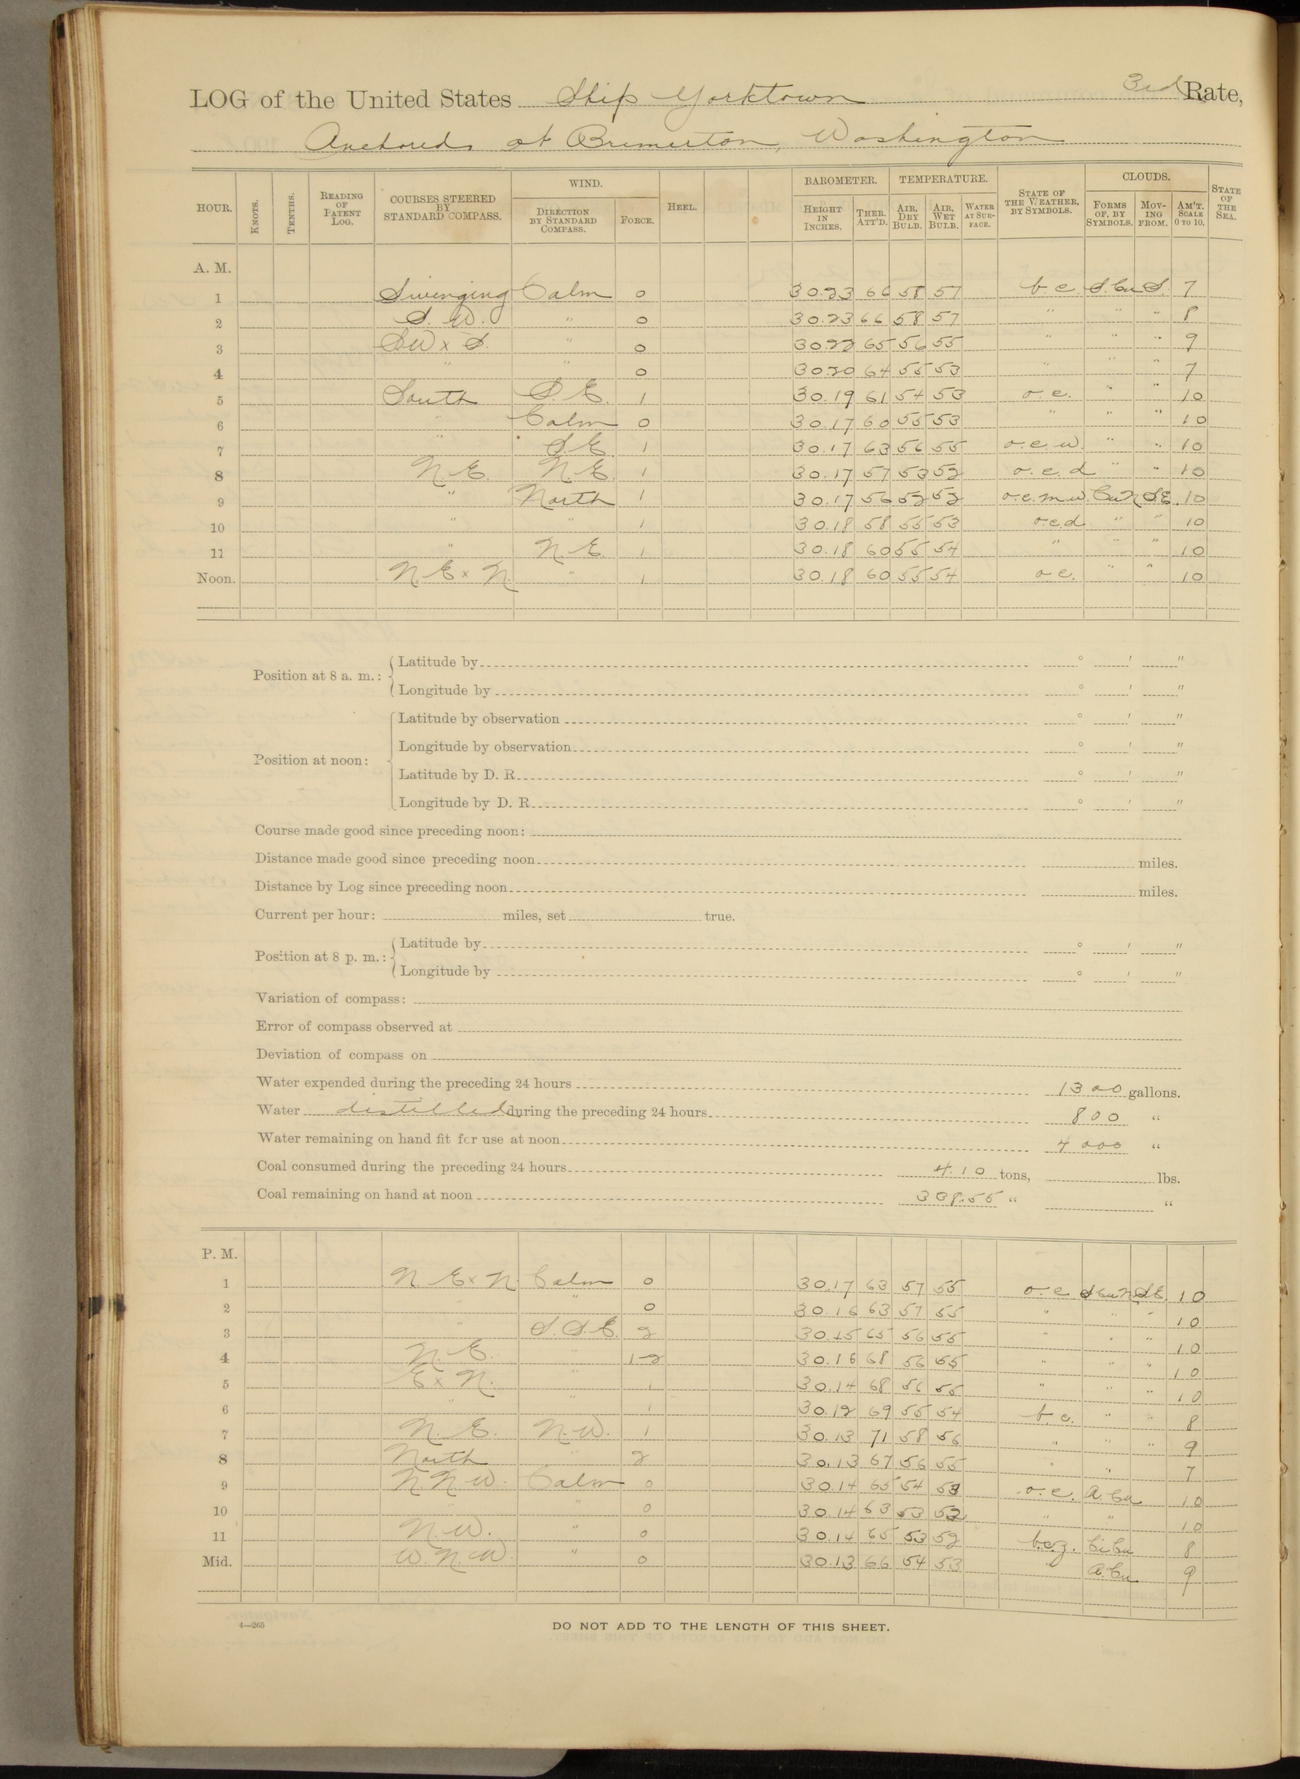 LOG of the United States Ship Yorktown 3rd Rate,
Anchored at Bremerton, Washington
HOUR. KNOTS. TENTHS. READING OF PATENT LOG. COURSES STEERED BY STANDARD COMPASS. WIND. DIRECTION BY STANDARD COMPASS. FORCE. HEEL. BAROMETER. HEIGHT IN INCHES. THER. ATT'D. TEMPERATURE. AIR, DRY BULB. AIR, WET BULB. WATER AT SURFACE. STATE OF THE WEATHER, BY SYMBOLS. CLOUDS. FORMS OF, BY SYMBOLS. MOVING FROM. AM'T. SCALE 0 TO 10. STATE OF THE SEA.
A. M.
1 Swinging Calm 0 30.23 66 58 57 b.c. S.Cu S. 7
2 S. W. " 0 30.23 66 58 57 " " " 8
3 SW x S. " 0 30.22 65 56 55 " " " 9
4 " " 0 30.20 64 55 53 " " " 7
5 South S.E. 1 30.19 61 54 53 o.c. " " 10
6 " Calm 0 30.17 60 55 53 " " " 10
7 " S.E. 1 30.17 63 56 55 o.c.w. " " 10
8 N.E. N.E. 1 30.17 57 53 52 o.c.d " " 10
9 " North 1 30.17 56 52 52 o.c.m.w. CuN S.E. 10
10 " " 1 30.18 58 55 53 o.c.d " " 10
11 " N.E. 1 30.18 60 55 54 " " " 10
Noon. N.E x N. " 1 30.18 60 55 54 o.c. " " 10
Position at 8 a. m.: Latitude by ° ′ ″
Longitude by ° ′ ″
Position at noon: Latitude by observation ° ′ ″
Longitude by observation ° ′ ″
Latitude by D. R. ° ′ ″
Longitude by D. R. ° ′ ″
Course made good since preceding noon:
Distance made good since preceding noon miles.
Distance by Log since preceding noon miles.
Current per hour: miles, set true.
Position at 8 p. m.: Latitude by ° ′ ″
Longitude by ° ′ ″
Variation of compass:
Error of compass observed at
Deviation of compass on
Water expended during the preceding 24 hours 1300 gallons.
Water distilled during the preceding 24 hours 800 "
Water remaining on hand fit for use at noon 4000 "
Coal consumed during the preceding 24 hours 4.10 tons, lbs.
Coal remaining on hand at noon 308.55 " "
P. M.
1 N.E x N. Calm 0 30.17 63 57 55 o.c. S.CuN SE. 10
2 " 0 30.16 63 57 55 " " " 10
3 " S.S.E. 2 30.15 65 56 55 " " " 10
4 N.E. " 1-2 30.16 68 56 55 " " " 10
5 E x N. " 1 30.14 68 56 55 " " " 10
6 " " 1 30.12 69 55 54 b.c. " " 8
7 N.E. N.W. 1 30.13 71 58 56 " " " 9
8 North " 2 30.13 67 56 55 " " 7
9 N N W. Calm 0 30.14 65 54 53 o.c. A.Cu 10
10 " " 0 30.14 63 53 52 " " 10
11 N.W. " 0 30.14 65 53 52 b.c.z. Ci.Cu 8
Mid. W.N.W. " 0 30.13 66 54 53 " A.Cu 9
4—265
DO NOT ADD TO THE LENGTH OF THIS SHEET.